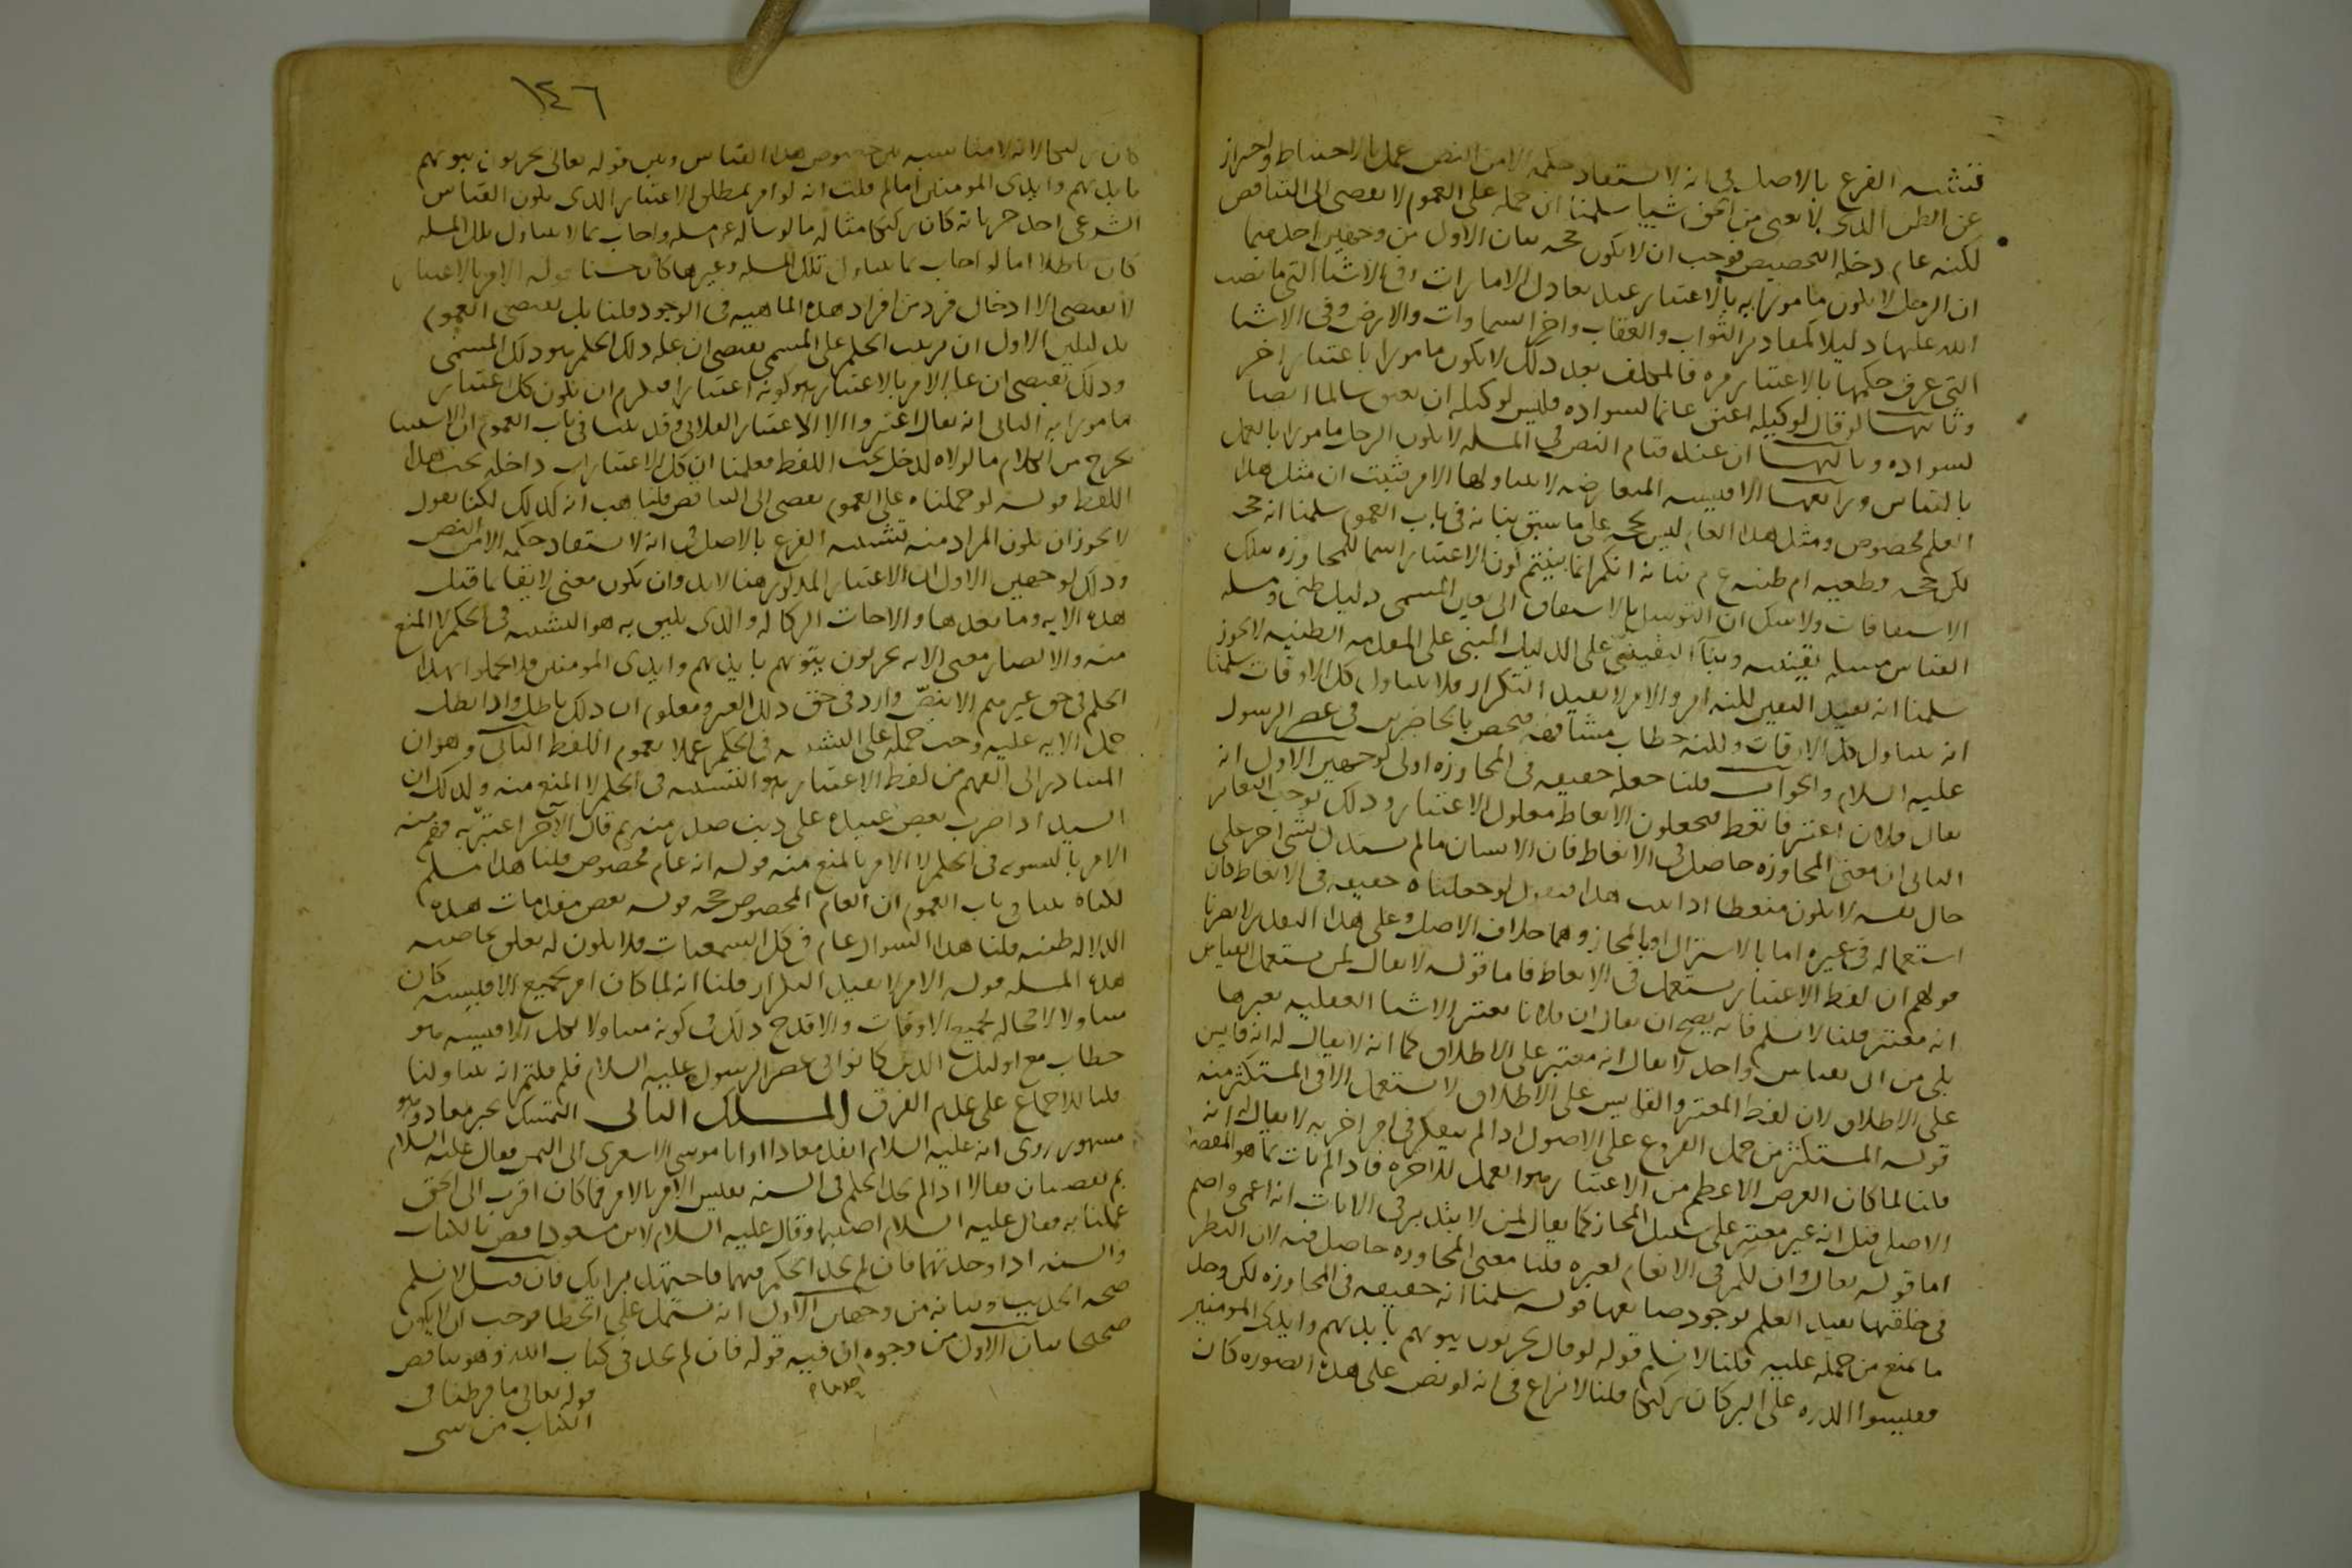 فنشبه الفرع بالاصل في انه لا يستفاد حكمه الا من النص عملا بالاحتياط واحترازا
عن الظن الذي لا يغني من الحق شيا سلمنا ان حمله على العموم لا يفضي الى التناقض
لكنه عام دخله التخصيص فوجب ان لا يكون حجه بيان الاول من وجهين احدهما
ان الرجل لا يكون مامورا به بالاعتبار عند تعادل الامارات وفي الاشيا التي ما نصب
الله عليها دليلا كمقادير الثواب والعقاب واجزا السماوات والارض وفي الاشيا
التي عرف حكمها بالاعتبار مره فالمكلف بعد ذلك لا يكون مامورا باعتبار اخر
وثانيها لو قال لوكيله اعتق غانما لسواده فليس لوكيله ان يعتق سالما ايضا
لسواده وثالثها ان عند قيام النص في المسله لا يكون الرجل مامورا بالعمل
بالقياس ورابعها الاقيسه المتعارضه لا يتناولها الامر فثبت ان مثل هذا
العلم مخصوص ومثل هذا العام ليس بحجه على ما سبق بيانه في باب العموم سلمنا انه حجه
لكن حجه قطعيه ام ظنيه ع م بيانه انكم انما بينتم كون الاعتبار اسما للمجاوزه بتلك
الاشتقاقات ولا شك ان التوسل بالاشتقاق الى تعيين المسمى دليل ظني ومسله
القياس مسله يقينيه وبنآ اليقيني على الدليل المبني على المقدمه الظنيه لا يجوز
سلمنا انه يفيد اليقين لكنه امر والامر لا يفيد التكرار فلا يتناول كل الاوقات سلمنا
انه يتناول كل الاوقات ولكنه خطاب مشافهه فيختص بالحاضرين في عصر الرسول
عليه السلام والجواب قلنا جعله حقيقه في المجاوزه اولى لوجهين الاول انه
يقال فلان اعتبر فاتعظ فيجعلون الاتعاظ معلول الاعتبار وذلك يوجب التغاير
الثاني ان معنى المجاوزه حاصل في الاتعاظ فان الانسان ما لم يستدل بشي اخر على
حال نفسه لا يكون متعظا اذا ثبت هذا فنقول لو جعلناه حقيقه في الاتعاظ كان
استعماله في غيره اما بالاشتراك او بالمجاز وهما خلاف الاصل وعلى هذا التقدير لا يضرنا
قولهم ان لفظ الاعتبار يستعمل في الاتعاظ فاما قوله لا يقال لمن يستعمل القياس
انه معتبر قلنا لا نسلم فانه يصح ان يقال ان فلانا يعتبر الاشيا العقليه بغيرها
بلى من اتى بقياس واحد لا يقال انه معتبر على الاطلاق كما انه لا يقال له انه قايس
على الاطلاق لان لفظ المعتبر والقايس على الاطلاق لا يستعمل الا في المستكثر منه
قوله المستكثر من حمل الفروع على الاصول اذا لم يتفكر في امر اخرته لا يقال انه
قلنا لما كان الغرض الاعظم من الاعتبار وهو العمل للاخره فاذا لم يات بما هو المقصود
الاصلي قيل انه غير معتبر على سبيل المجاز كما يقال لمن لا يتدبر في الايات انه اعمى واصم
اما قوله تعالى وان لكم في الانعام لعبره قلنا معنى المجاوزه حاصل فيه لان النظر
في خلقتها يفيد العلم بوجود صانعها قوله سلمنا انه حقيقه في المجاوزه لكن وجد
ما يمنع من حمله عليه قلنا لا نسلم قوله لو قال يخربون بيوتهم بايديهم وايدي المومنين
فقيسوا الذره على البر كان ركيكا قلنا لا نزاع في انه لو نص على هذه الصوره كان
١٤٦
كان ركيكا لانه لا مناسبه بين خصوص هذا القياس وبين قوله تعالى يخربون بيوتهم
بايديهم وايدي المومنين اما لم قلت انه لو امر بمطلق الاعتبار الذي يكون القياس
الشرعي احد جزياته كان ركيكا مثاله ما لو ساله عن مسله واجاب بما لا يتناول تلك المسله
كان باطلا اما لو اجاب بما يتناول تلك المسله وغيرها كان حسنا قوله الامر بالاعتبار
لا يقتضي الا ادخال فرد من افراد هذه الماهيه في الوجود قلنا بل يقتضي العموم
بدليلين الاول ان ترتيب الحكم على المسمى يقتضي ان عله ذلك الحكم هو ذلك المسمى
وذلك يقتضي ان عله الامر بالاعتبار هو كونه اعتبارا فيلزم ان يكون كل اعتبار
مامورا به الثاني انه يقال اعتبروا الا الاعتبار الفلاني وقد بينا في باب العموم ان الاستثنا
يخرج من الكلام ما لولاه لدخل تحت اللفظ فعلمنا ان كل الاعتبارات داخله تحت هذا
اللفظ قوله لو حملناه على العموم يفضي الى التناقض قلنا هب انه كذلك لكنا نقول
لا يجوز ان يكون المراد منه تشبيه الفرع بالاصل في انه لا يستفاد حكمه الا من النص
وذلك لوجهين الاول ان الاعتبار المذكور هنا لابد وان يكون معنى لايقا بما قبل
هذه الايه وما بعدها والا جات الركاكه والذي يليق به هو التشبيه في الحكم لا المنع
منه والا لصار معنى الايه يخربون بيوتهم بايديهم وايدي المومنين فلا تحكموا بهذا
الحكم في حق غيرهم الا بنصّ وارد في حق ذلك الغير ومعلوم ان ذلك باطل واذا بطل
حمل الايه عليه وجب حمله على التشبيه في الحكم عملا بعموم اللفظ الثاني وهو ان
المتبادر الى الفهم من لفظ الاعتبار هو التشبيه في الحكم لا المنع منه ولذلك ان
السيد اذا ضرب بعض عبيده على ذنب صدر منه ثم قال للآخر اعتبر به فهم منه
الامر بالتسويه في الحكم لا الامر بالمنع منه قوله انه عام مخصوص قلنا هذا مسلم
لكناه بينا في باب العموم ان العام المخصوص حجه قوله بعض مقدمات هذه
الدلاله ظنيه قلنا هذا السوال عام في كل السمعيات فلا يكون له تعلق بخاصيه
هذه المسله قوله الامر لا يفيد التكرار قلنا انه لما كان امر بجميع الاقيسه كان
متناولا لا محاله لجميع الاوقات والا قدح ذلك في كونه متناولا لكل الاقيسه هو
خطاب مع اوليك الذين كانوا في عصر الرسول عليه السلام فلم قلتم انه يتناولنا
قلنا للاجماع على عدم الفرق المسلك الثاني التمسك بخبر معاذ وهو
مشهور روى انه عليه السلام انفذ معاذا وابا موسى الاشعري الى اليمن فقال عليه السلام
بم تقضيان فقالا اذا لم نجد الحكم في السنه نقيس الامر بالامر فما كان اقرب الى الحق
عملنا به فقال عليه السلام اصبتما وقال عليه السلام لابن مسعود اقض بالكتاب
والسنه اذا وجدتهما فان لم تجد الحكم فيهما فاجتهد برايك فان قيل لا نسلم
صحه الحديث وبيانه من وجهين الاول انه مشتمل على الخطا فوجب ان لا يكون
صحيحا بيان الاول من وجوه احدها ان فيه قوله فان لم تجد في كتاب الله وهو يناقض
قوله تعالى ما فرطنا في
الكتاب من شي